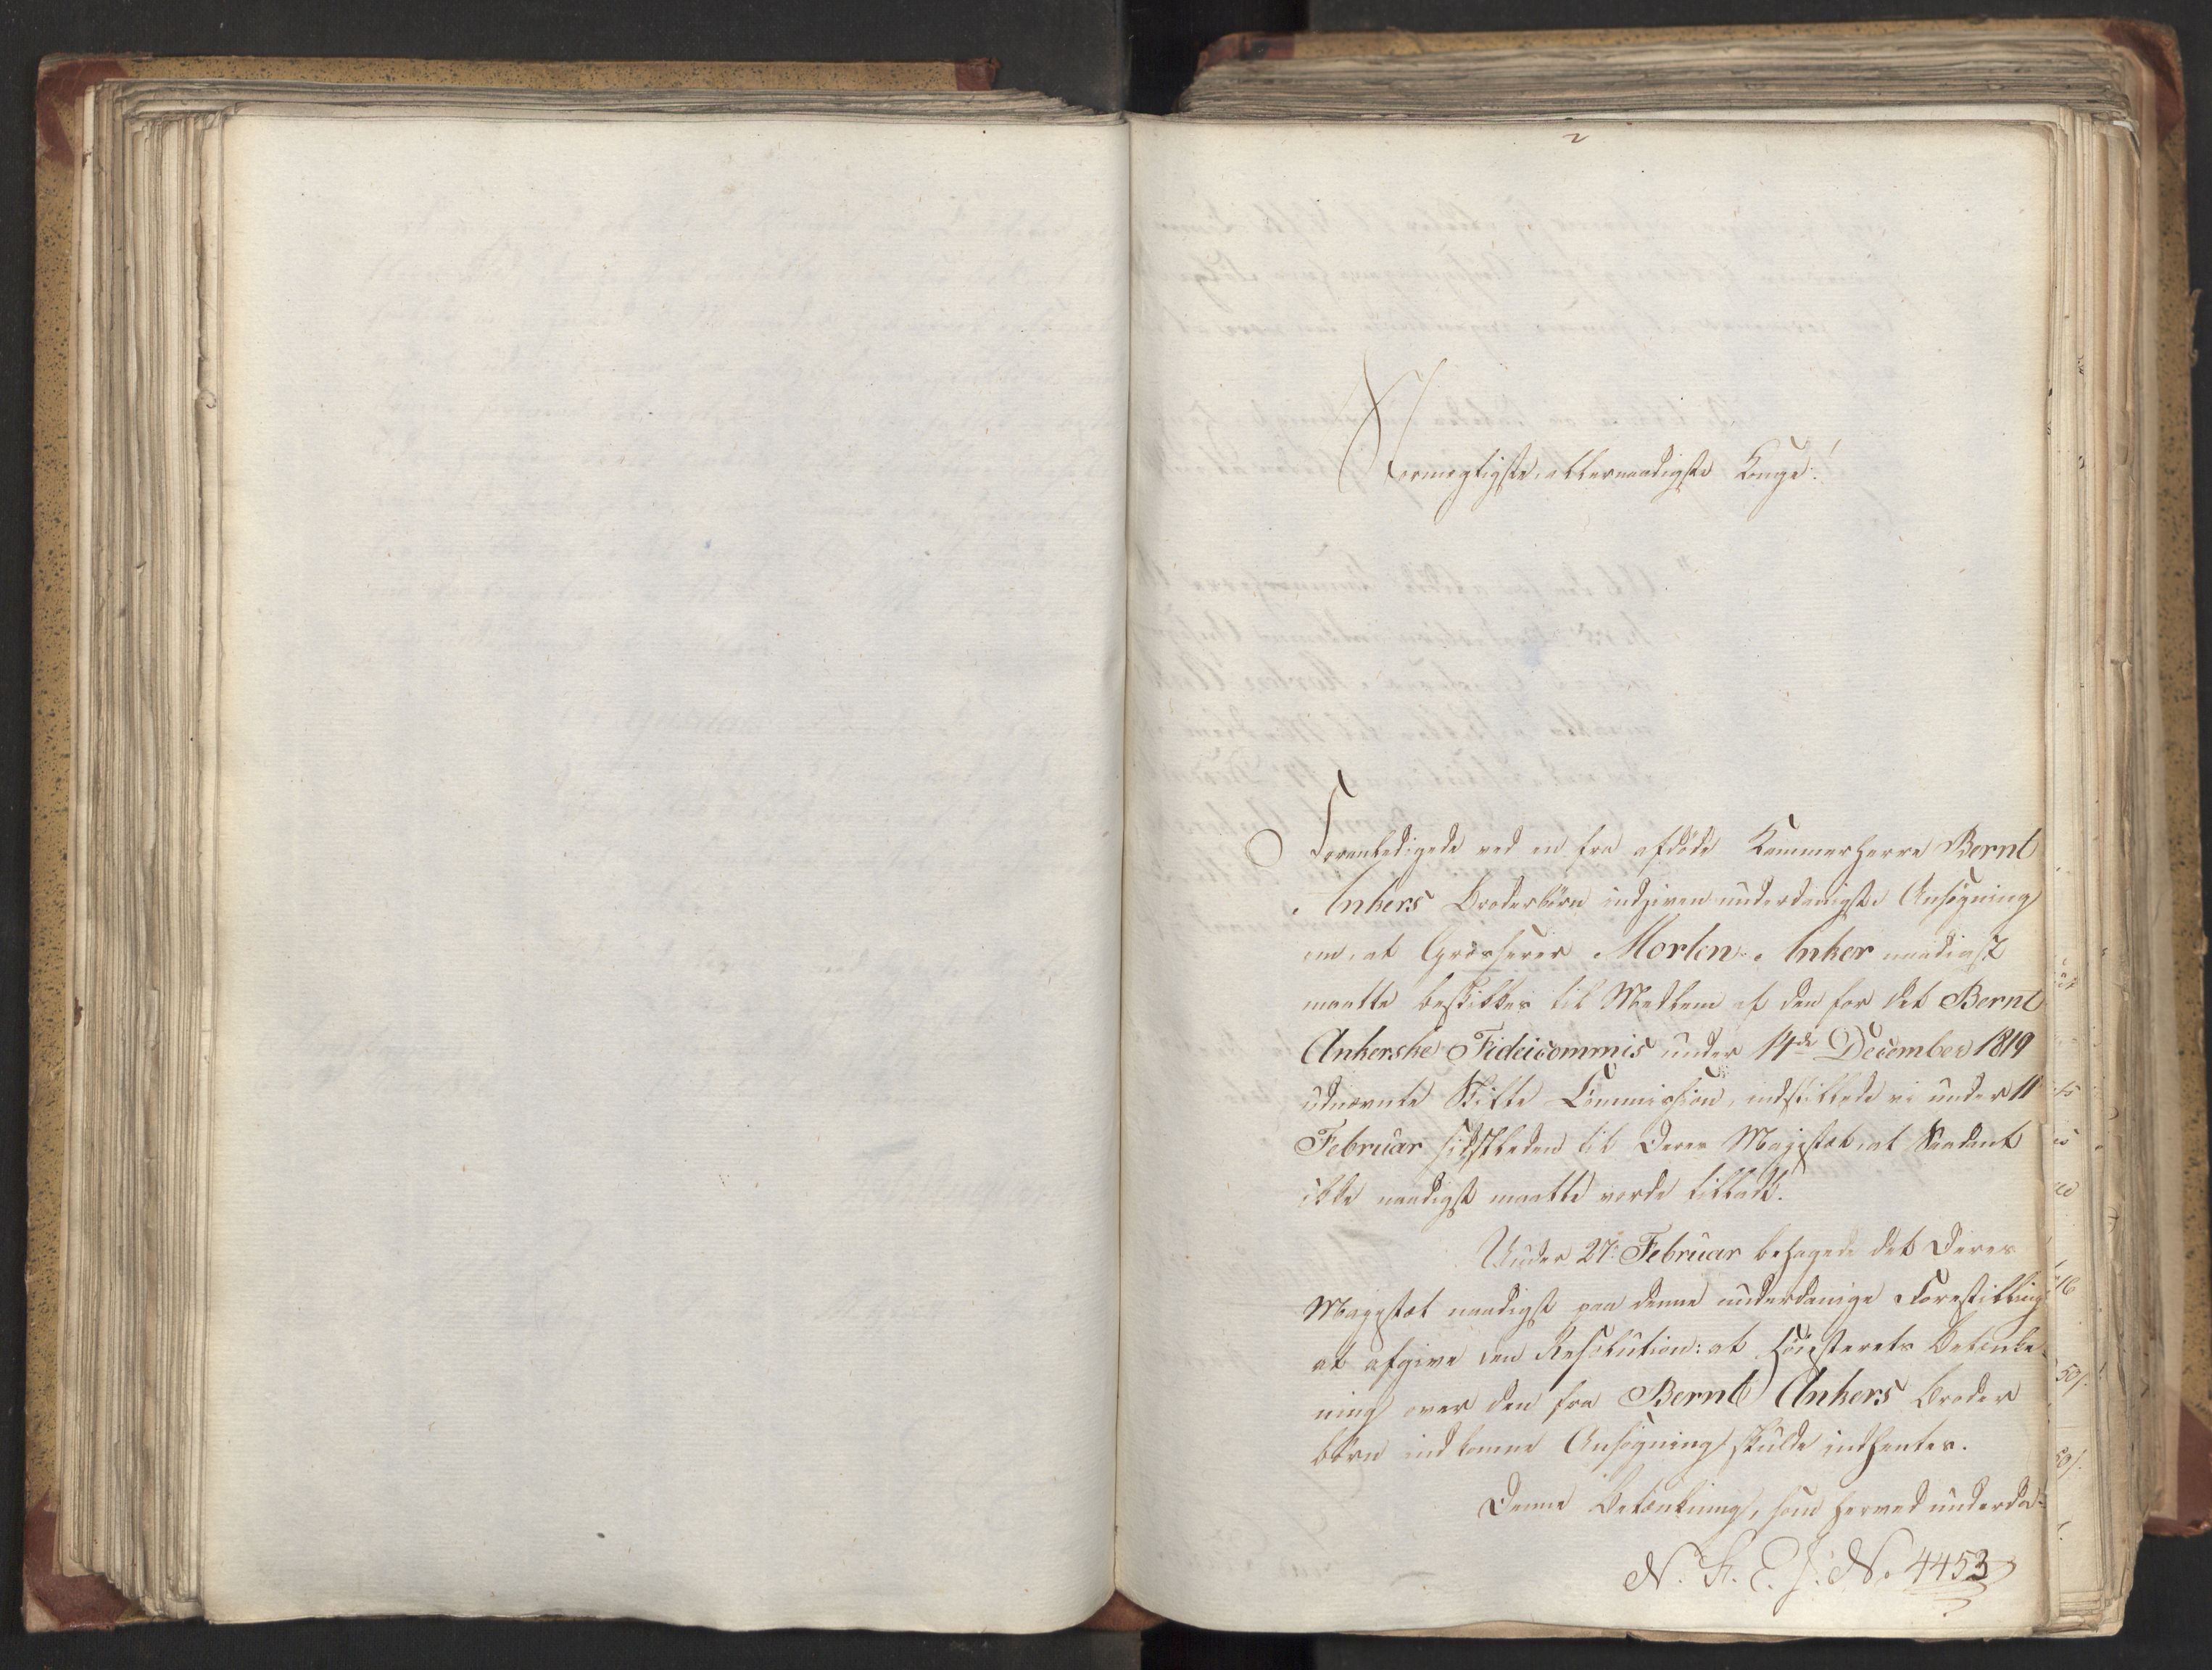 Stormægtigste, allernaadigste Konge!
Foranledigede ved en fra afdøde Kammerherre Bernt
Ankers Broderbørn indgiven underdanigst Ansøgning
om, at Grosserer Morten Anker naadigst
maatte beskikkes til Medlem af den for det Bernt
Ankerske Fideicommis under 14de December 1819
udnævnte Skifte Commission, indstillede vi under 11
Februar sidstleden til Deres Majestæt, at Saadant
ikke naadigst maatte vorde tilladt.
Under 27. Februar behagede det Deres
Majestæt naadigst paa denne underdanige Forestilling
at afgive den Resolution: at Høiesterets Betænk-
ning over den fra Bernt Ankers Broder
børn indkomne Ansøgning skulde indhentes.
Denne Betænkning, som herved underda-
N. 4453